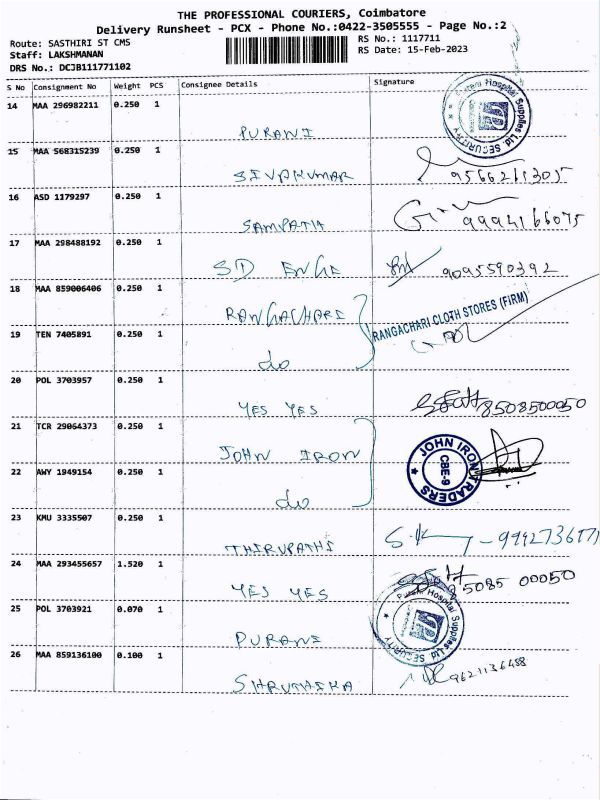 THE PROFESSIONAL COURIERS, Coimbatore
Delivery Runsheet - PCX - Phone No.:0422-3505555 - Page No.:2
Route: SASTHIRI ST CMS
RS No.: 1117711
Staff: LAKSHMANAN
RS Date: 15-Feb-2023
DRS No.: DCJB111771102
S No Consignment No Weight PCS Consignee Details Signature
14 MAA 296982211 0.250 1
PURANI
Purani Hospital Supplies Ltd SECURITY
15 MAA 568315239 0.250 1
SIVAKUMAR 9566211305
16 ASD 1179297 0.250 1
SAMPATH 9994166075
17 MAA 298488192 0.250 1
SD ENGE 9095590392
18 MAA 859006406 0.250 1
RANGACHARI
RANGACHARI CLOTH STORES (FIRM)
19 TEN 7405891 0.250 1
do
20 POL 3703957 0.250 1
YES YES 8508500050
21 TCR 29064373 0.250 1
JOHN IRON
JOHN IRON TRADERS
CBE-9
22 AWY 1949154 0.250 1
do
23 KMU 3335507 0.250 1
THIRUPATHI
24 MAA 293455657 1.520 1
YES YES 85085 00050
25 POL 3703921 0.070 1
PURANI
Purani Hospital Supplies Ltd SECURITY
26 MAA 859136100 0.100 1
9621136488